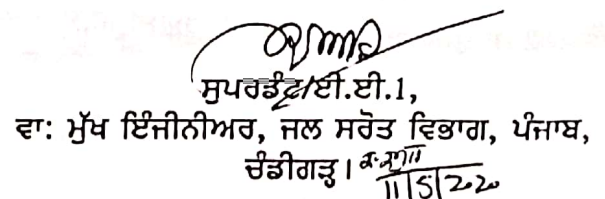 ਸੁਪਰਡੰਟ/ਈ.ਈ.1,
ਵਾ: ਮੁੱਖ ਇੰਜੀਨੀਅਰ, ਜਲ ਸਰੋਤ ਵਿਭਾਗ, ਪੰਜਾਬ,
ਚੰਡੀਗੜ੍ਹ।
11/5/2020